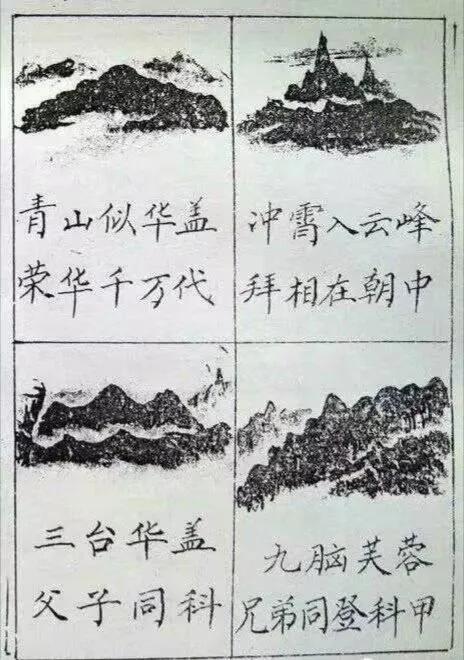 青山似华盖
荣华千万代
冲霄入云峰
拜相在朝中
三台华盖
父子同科
九脑芙蓉
兄弟同登科甲